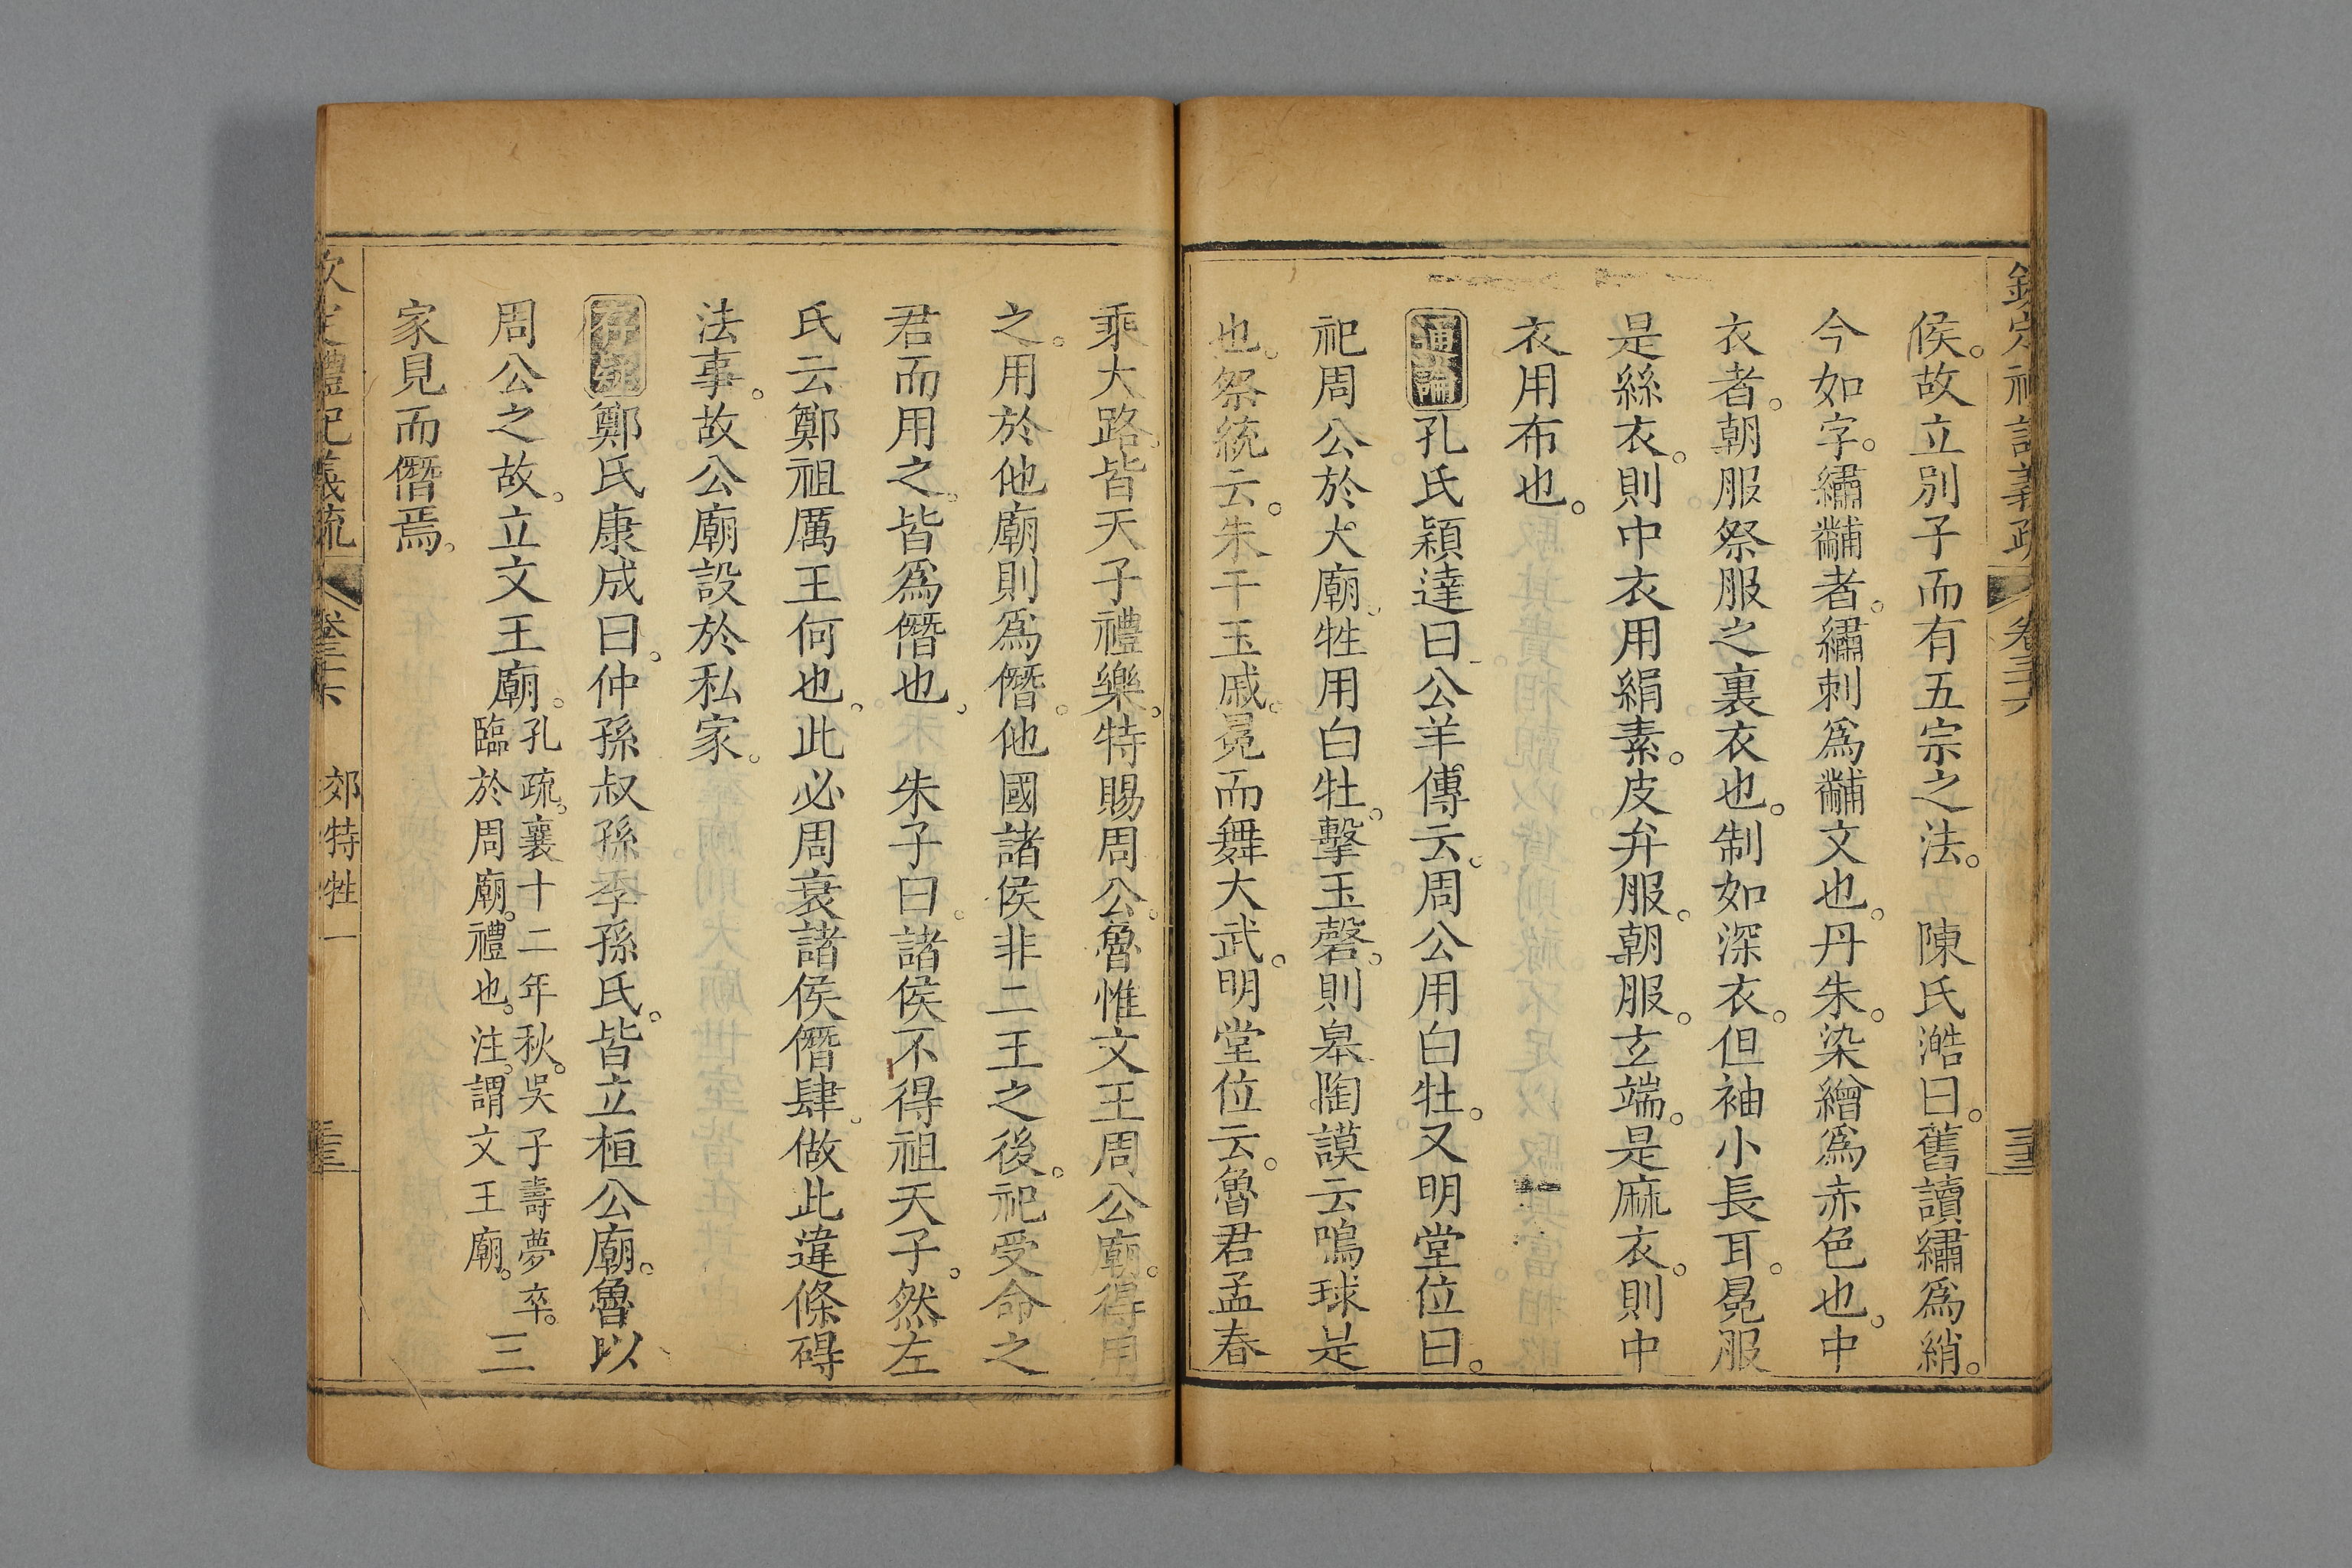 欽定禮記義疏 卷三十六 三三
侯。故立別子而有五宗之法。 陳氏澔曰。舊讀繡爲綃。
今如字。繡黼者。繡刺爲黼文也。丹朱。染繒爲赤色也。中
衣者。朝服祭服之裏衣也。制如深衣。但袖小長耳。冕服
是絲衣。則中衣用絹素。皮弁服。朝服。玄端。是麻衣。則中
衣用布也。
通論孔氏穎達曰公羊傳云。周公用白牡。又明堂位曰。
祀周公於大廟。牲用白牡。擊玉磬。則皋陶謨云鳴球是
也。祭統云。朱干玉戚。冕而舞大武。明堂位云。魯君孟春
乘大路。皆天子禮樂。特賜周公。魯惟文王周公廟。得用
之。用於他廟則爲僭。他國諸侯非二王之後。祀受命之
君而用之。皆爲僭也。 朱子曰。諸侯不得祖天子。然左
氏云鄭祖厲王何也。此必周衰諸侯僭肆。做此違條碍
法事。故公廟設於私家。
存疑鄭氏康成曰。仲孫叔孫季孫氏。皆立桓公廟。魯以
周公之故。立文王廟。孔疏。襄十二年秋。吳子壽夢卒。臨於周廟。禮也。注。謂文王廟。三
家見而僭焉。
欽定禮記義疏 卷三十六 郊特牲一 三三